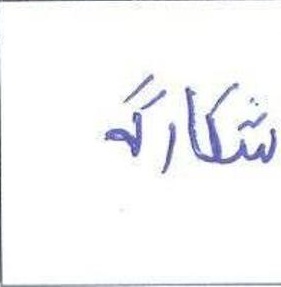 شکارگہ